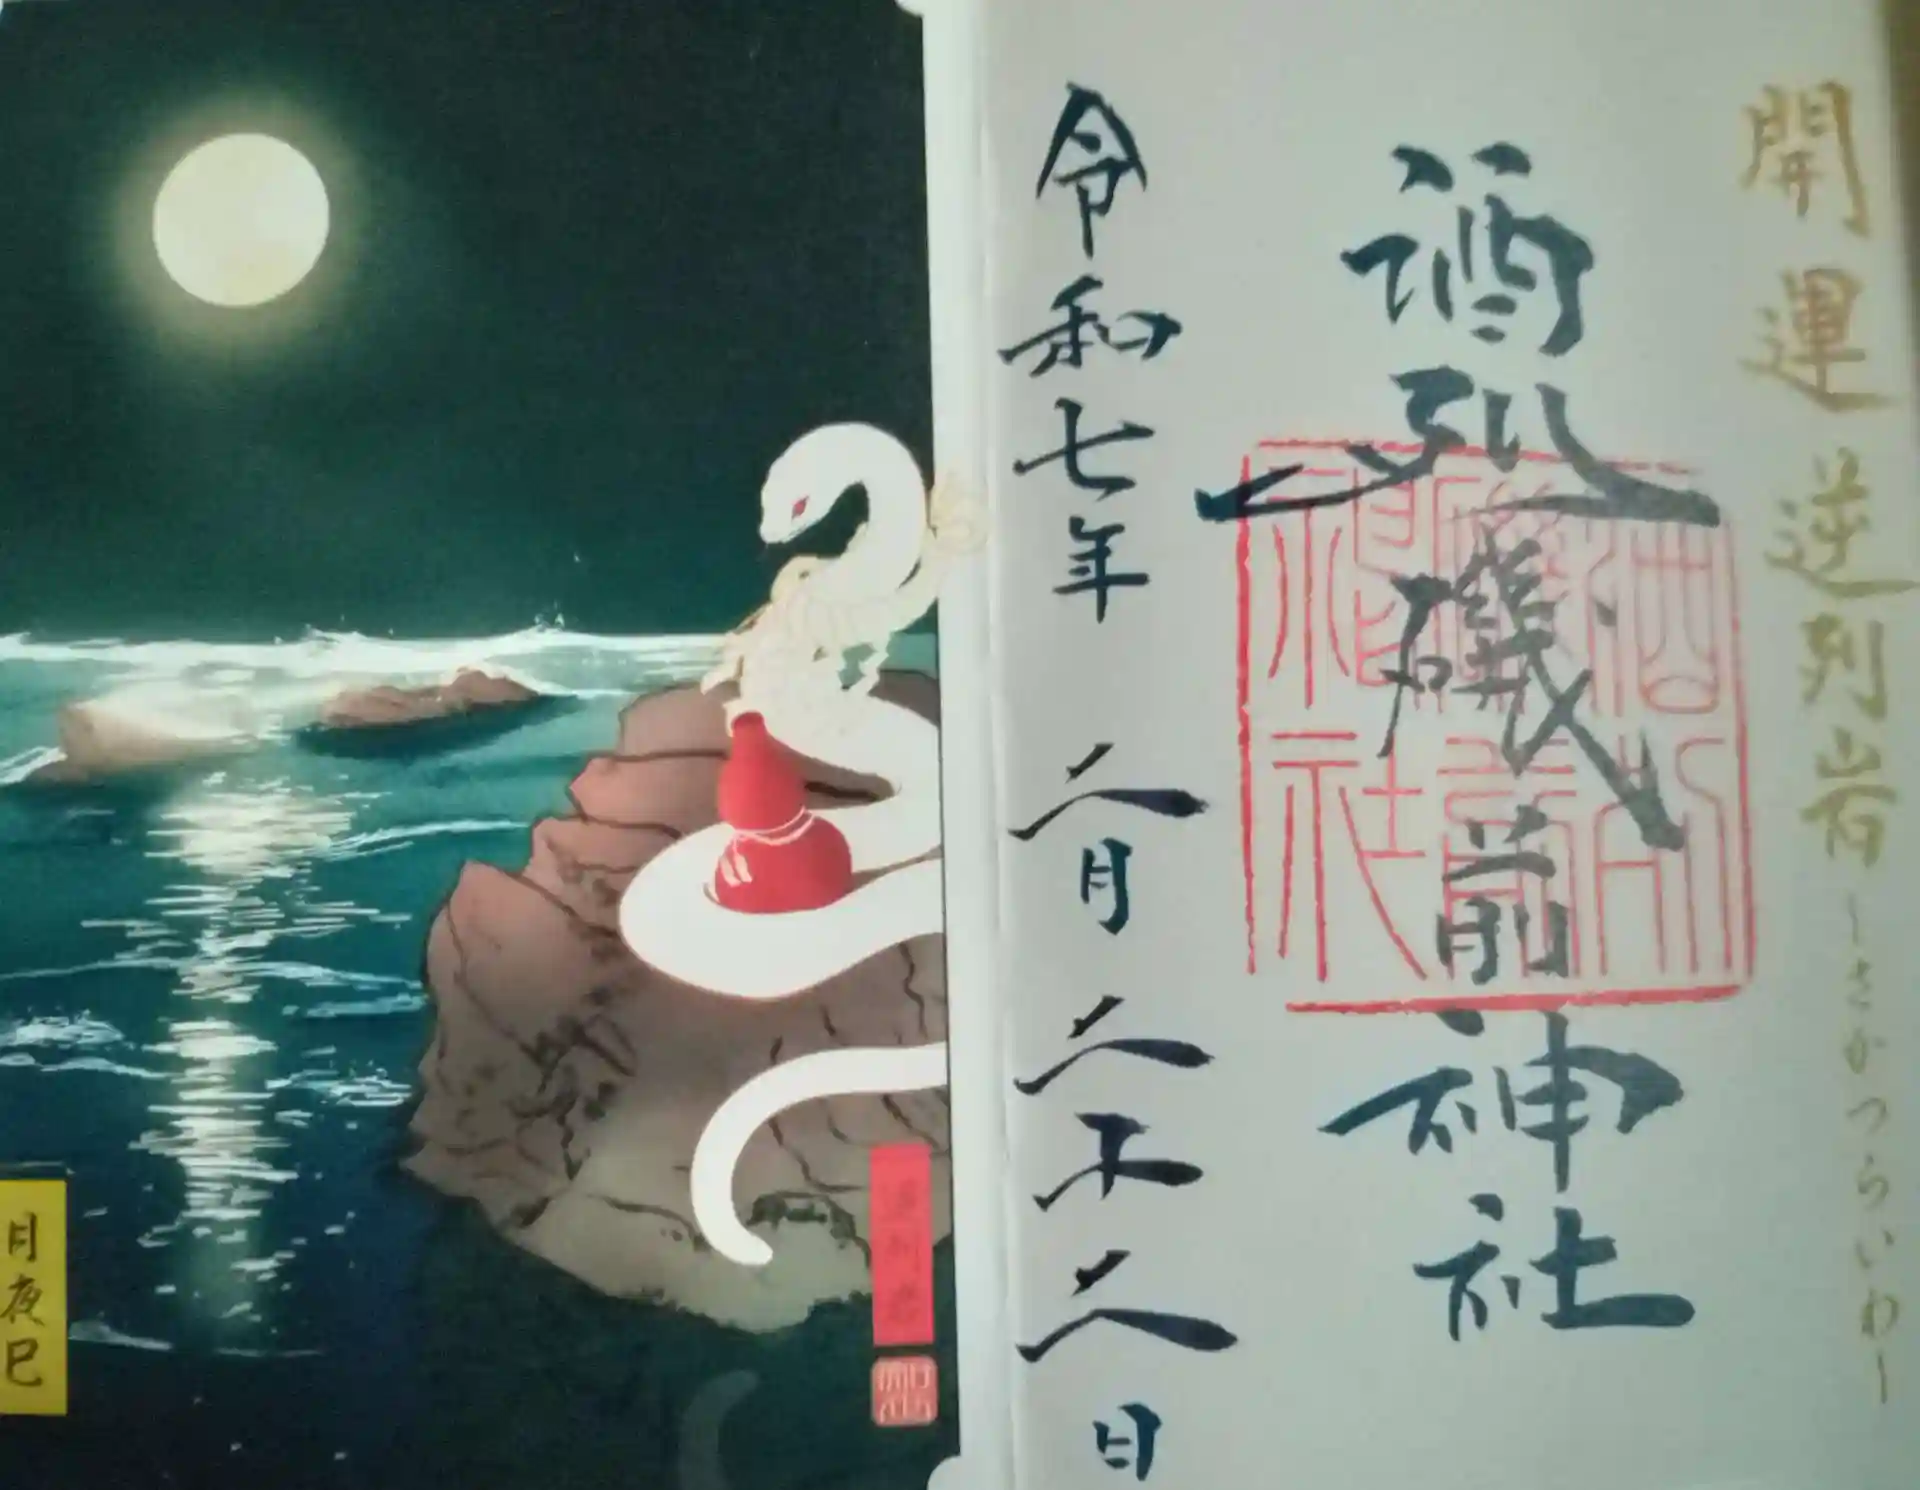 開運 逆列岩 ―さかつらいわ―
酒列磯前神社
酒列磯前神社
令和七年 二月 二十二日
月夜巳